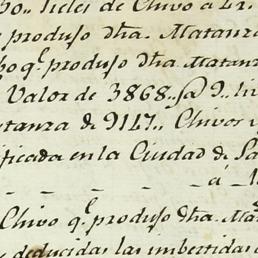 pieles de Chivo a 2 r.
produjo dha. Matanz
q.e produjo dha. Matanz
Valor de 3868..@ 9.. li
tanza de 9147.. Chivos y
ificada en la Ciudad de Sa
- - - - - á 1
Chivo q.e produjo dha. Ma
deducidas las imbertidas